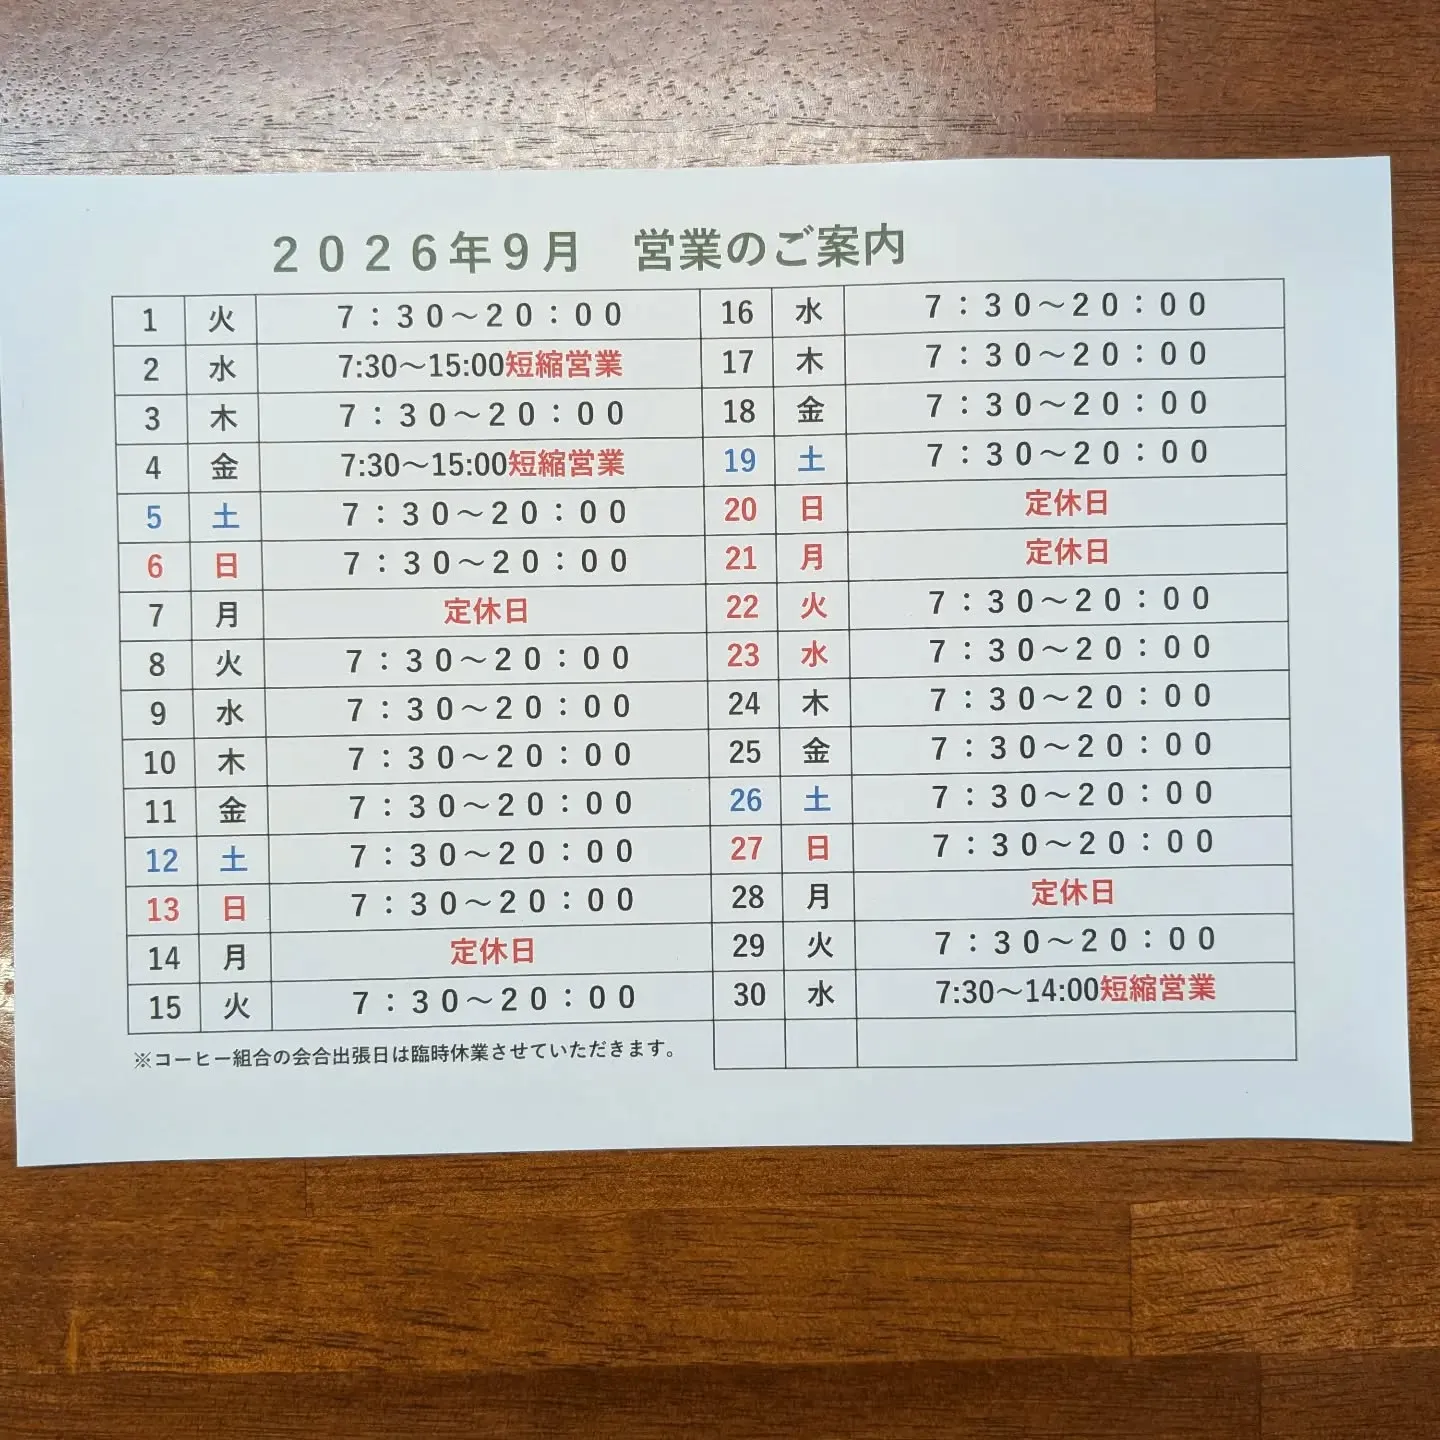 ２０２６年９月　営業のご案内
1 火 ７：３０～２０：００
2 水 7:30～15:00短縮営業
3 木 ７：３０～２０：００
4 金 7:30～15:00短縮営業
5 土 ７：３０～２０：００
6 日 ７：３０～２０：００
7 月 定休日
8 火 ７：３０～２０：００
9 水 ７：３０～２０：００
10 木 ７：３０～２０：００
11 金 ７：３０～２０：００
12 土 ７：３０～２０：００
13 日 ７：３０～２０：００
14 月 定休日
15 火 ７：３０～２０：００
16 水 ７：３０～２０：００
17 木 ７：３０～２０：００
18 金 ７：３０～２０：００
19 土 ７：３０～２０：００
20 日 定休日
21 月 定休日
22 火 ７：３０～２０：００
23 水 ７：３０～２０：００
24 木 ７：３０～２０：００
25 金 ７：３０～２０：００
26 土 ７：３０～２０：００
27 日 ７：３０～２０：００
28 月 定休日
29 火 ７：３０～２０：００
30 水 7:30～14:00短縮営業
※コーヒー組合の会合出張日は臨時休業させていただきます。